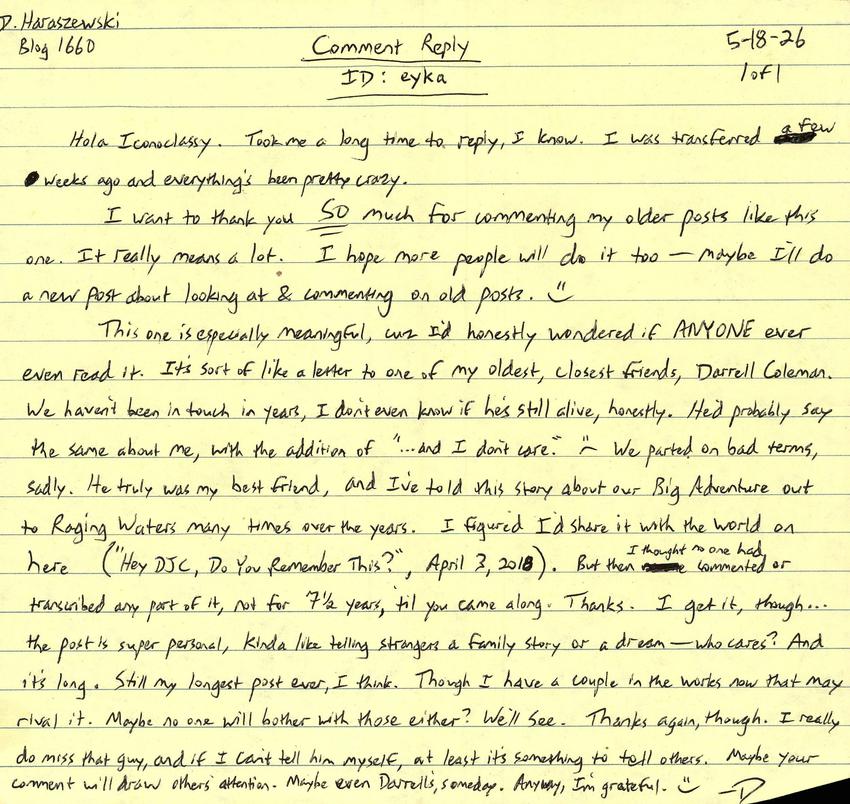 D. Haraszewski
Blog 1660
Comment Reply
ID: eyka
5-18-26
1 of 1
Hola Iconoclassy. Took me a long time to reply, I know. I was transferred a few
weeks ago and everything's been pretty crazy.
I want to thank you SO much for commenting my older posts like this
one. It really means a lot. I hope more people will do it too — maybe I'll do
a new post about looking at & commenting on old posts. :)
This one is especially meaningful, cuz I'd honestly wondered if ANYONE ever
even read it. It's sort of like a letter to one of my oldest, closest friends, Darrell Coleman.
We haven't been in touch in years, I don't even know if he's still alive, honestly. He'd probably say
the same about me, with the addition of "...and I don't care." :( We parted on bad terms,
sadly. He truly was my best friend, and I've told this story about our Big Adventure out
to Raging Waters many times over the years. I figured I'd share it with the world on
here ("Hey DJC, Do You Remember This?", April 3, 2018). But then I thought no one had commented or
transcribed any part of it, not for 7½ years, 'til you came along. Thanks. I get it, though...
the post is super personal, kinda like telling strangers a family story or a dream — who cares? And
it's long. Still my longest post ever, I think. Though I have a couple in the works now that may
rival it. Maybe no one will bother with those either? We'll see. Thanks again, though. I really
do miss that guy, and if I can't tell him myself, at least it's something to tell others. Maybe your
comment will draw others' attention. Maybe even Darrell's, someday. Anyway, I'm grateful. :) —D